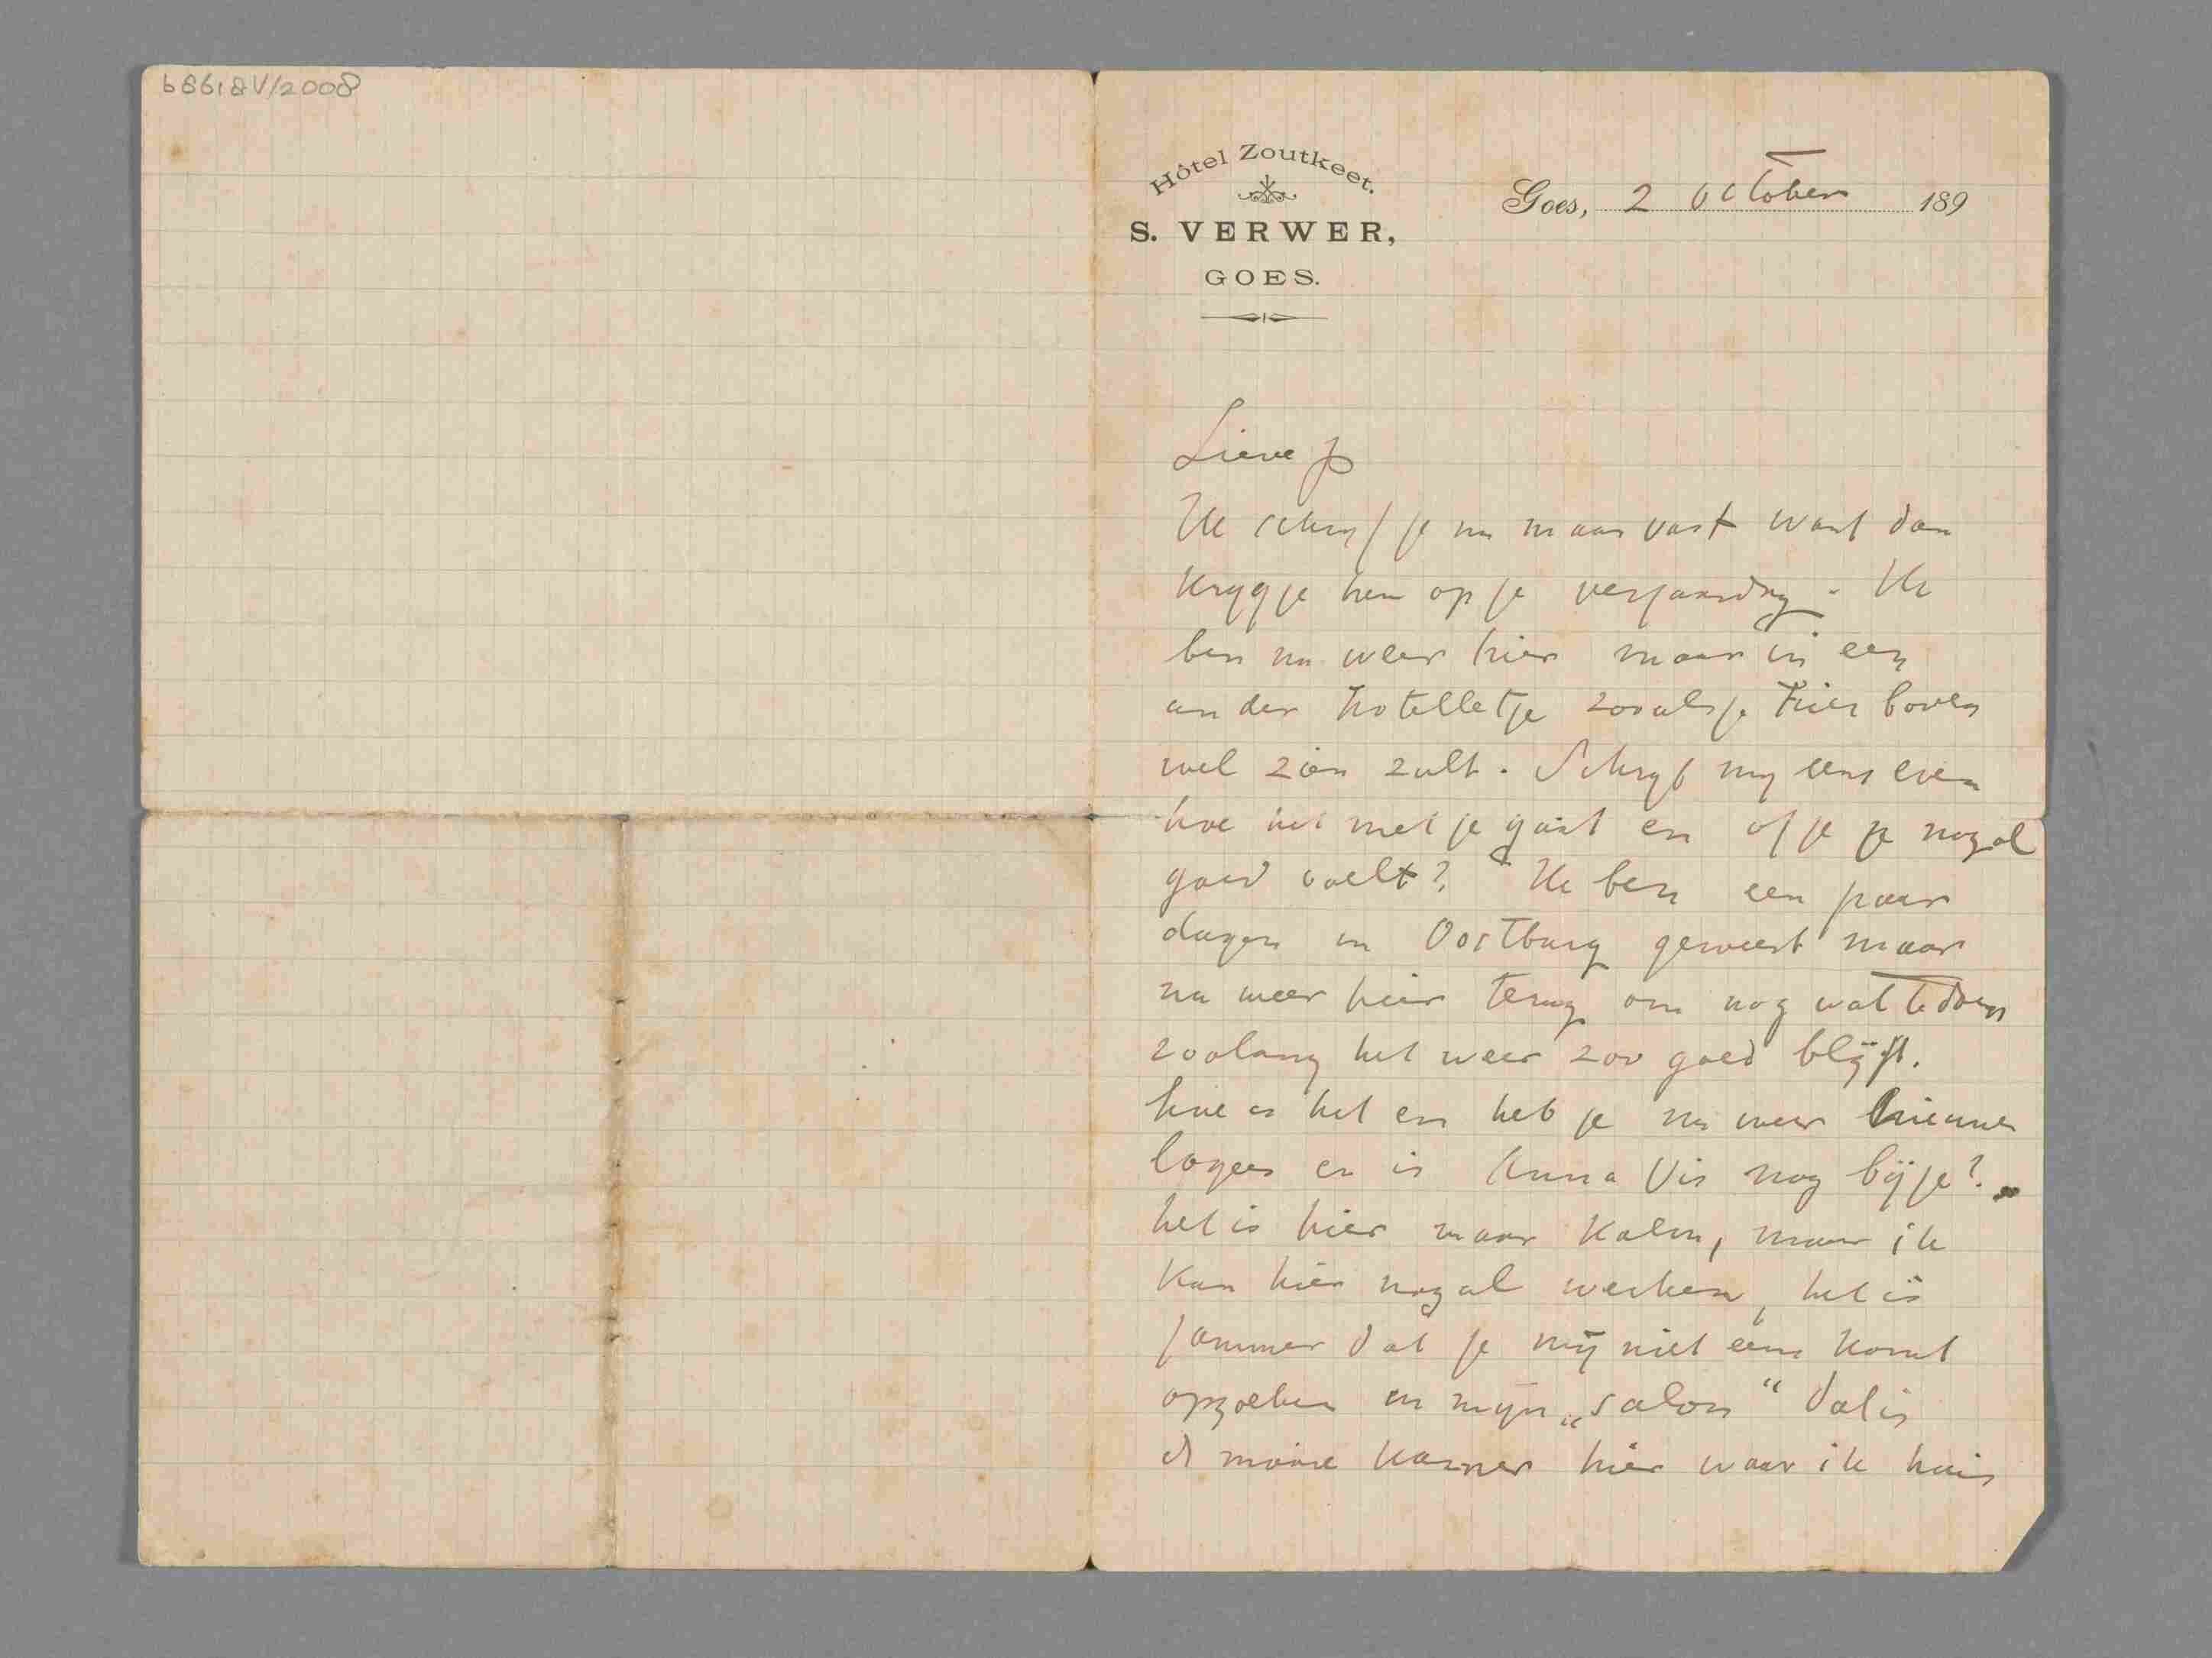 b8618V/2008
Hôtel Zoutkeet.
S. VERWER,
GOES.
Goes, 2 October 189
Lieve Jo
Ik schryf je nu maar vast want dan
kryg je hem op je verjaardag. Ik
ben nu weer hier maar in een
ander hotelletje zooals je hier boven
wel zien zult. Schryf my eens even
hoe het met je gaat en of je je nogal
goed voelt? Ik ben een paar
dagen in Oostburg geweest maar
nu weer hier terug om nog wat te doen
zoolang het weer zoo goed blijft.
hoe is het en heb je nu weer nieuwe
logees en is Anna Vis nog bij je?
het is hier maar kalm, maar ik
kan hier nogal werken, het is
jammer dat je mij niet eens komt
opzoeken in mijn „salon" dat is
de mooie kamer hier waar ik huis